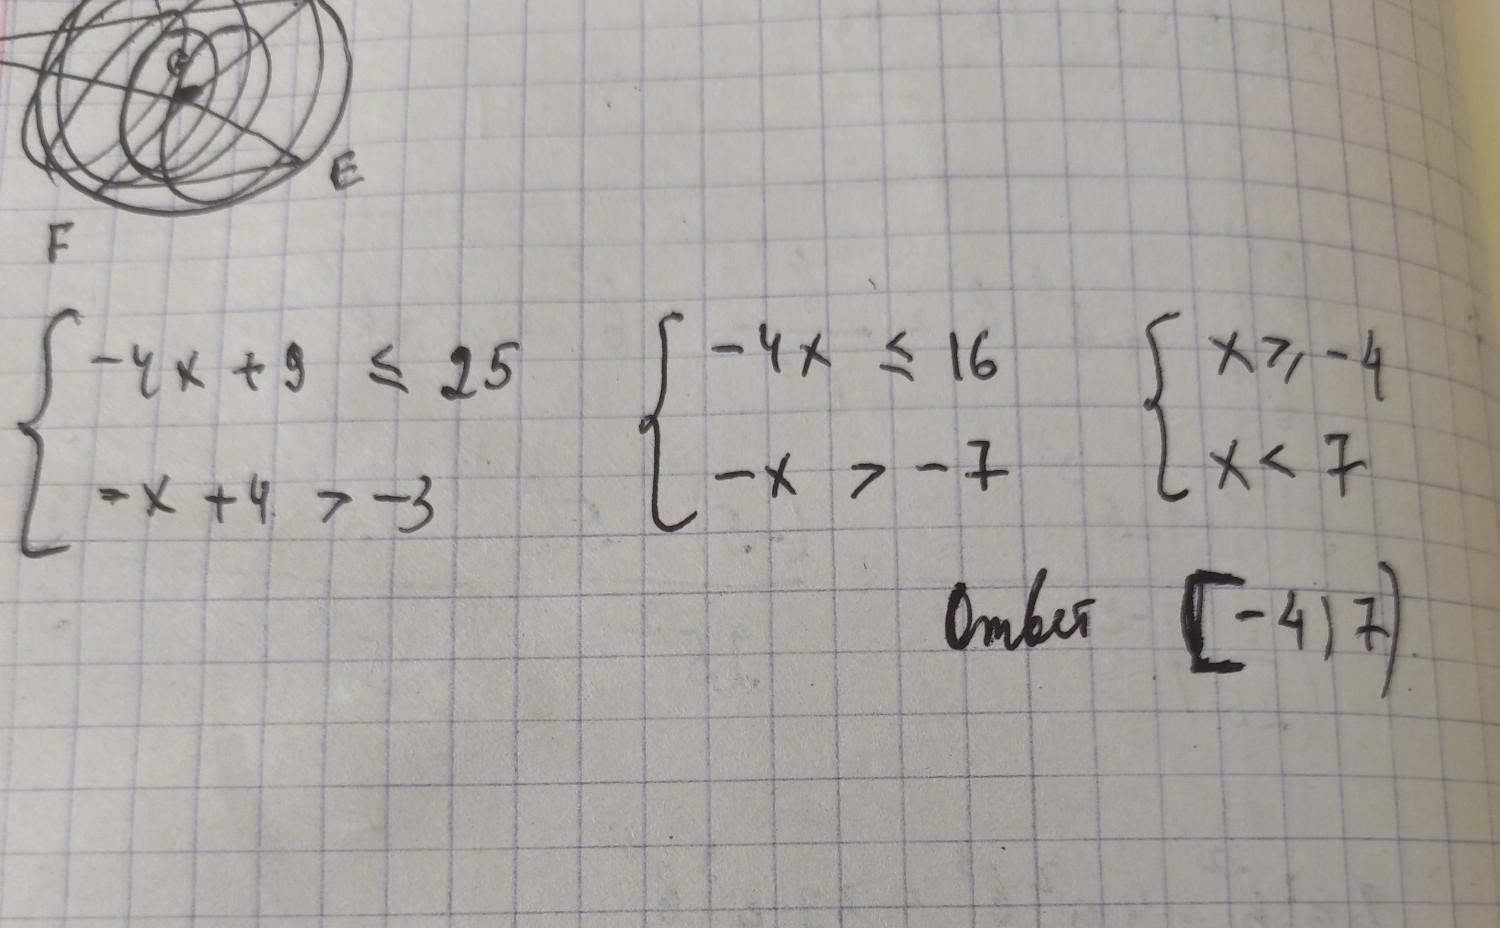 E
F
-4x + 9 ≤ 25
-x + 4 > -3
-4x ≤ 16
-x > -7
x ≥ -4
x < 7
Ответ [-4; 7)